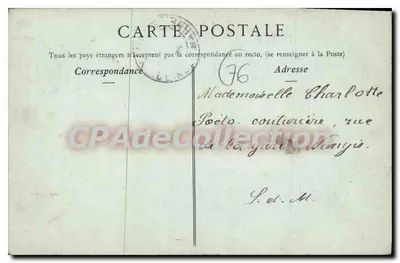 CARTE POSTALE
Tous les pays étrangers n'acceptent pas la correspondance au recto, (se renseigner à la Poste)
Correspondance
Adresse
76
Mademoiselle Charlotte
couturière, rue
de la gare Nangis
S. d. M.
CPADeCollection